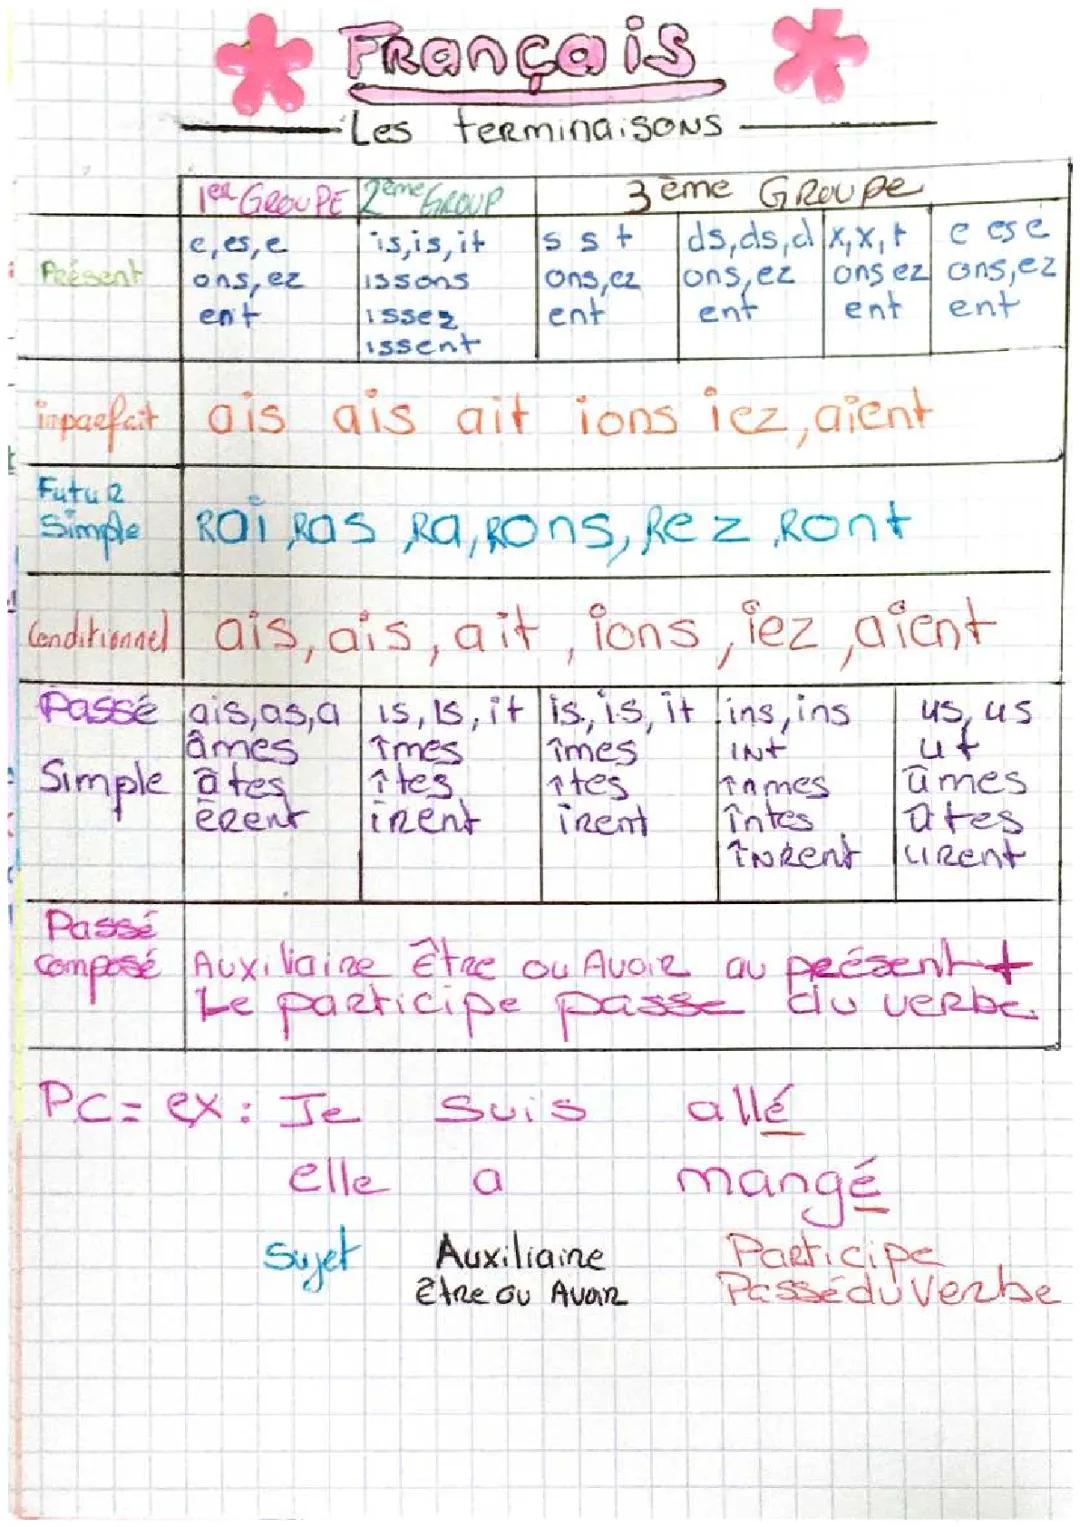 Français
Les terminaisons
1er GROUPE 2ème GROUP 3ème GROUPE
Présent
e, es, e
ons, ez
ent
is, is, it
issons
issez
issent
s s t
ons, ez
ent
ds, ds, d
ons, ez
ent
x, x, t
ons ez
ent
e es e
ons, ez
ent
imparfait ais ais ait ions iez, aient
Futur
Simple
Rai Ras, Ra, Rons, Rez, Ront
Conditionnel ais, ais, ait, ions, iez, aient
Passé
Simple
ais, as, a
âmes
âtes
èrent
is, is, it
îmes
îtes
irent
is, is, it
îmes
îtes
irent
ins, ins
int
înmes
întes
înrent
us, us
ut
ûmes
ûtes
urent
Passé
composé
Auxiliaire Être ou Avoir au présent +
Le participe passe du verbe.
PC = ex : Je suis allé
elle a mangé
Sujet Auxiliaire Participe
Être ou Avoir Passé du Verbe